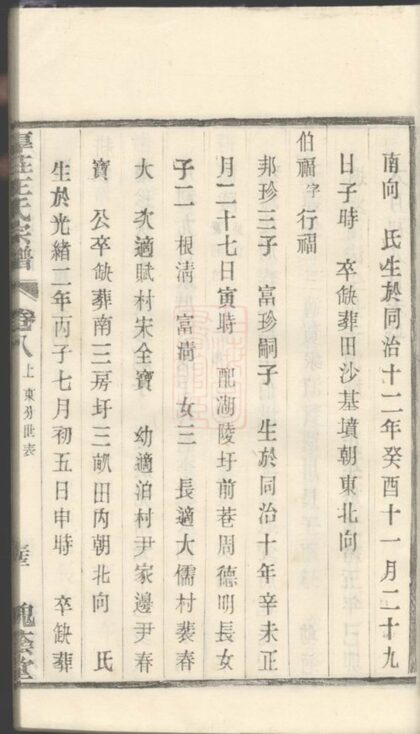 南向　氏生於同治十二年癸酉十一月二十九
日子時　卒缺葬田沙基墳朝東北向
伯福字行福
邦珍三子　富珍嗣子　生於同治十年辛未正
月二十七日寅時　配湖陵圩前巷周德明長女
子二　根淸　富淸　女三　長適大儒村裴春
大　次適賦村宋全寶　幼適泊村尹家邊尹春
寶　公卒缺葬南三房圩三畝田內朝北向　氏
生於光緖二年丙子七月初五日申時　卒缺葬
王氏宗譜　卷八　上東分世表　槐蔭堂